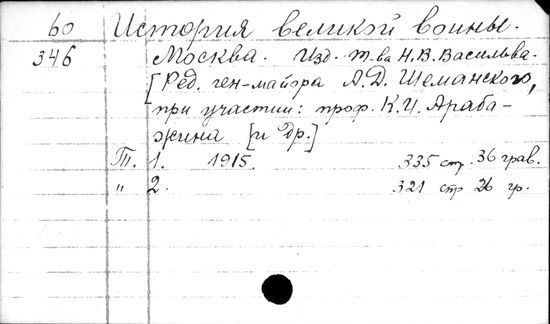 60 История великой войны.
346 Москва. Изд. т-ва Н.В. Васильва.
[Ред. ген-майора А.Д. Шеманского,
при участии: проф. К.И. Араба-
жина [и др.]
Т. 1. 1915. 335 стр. 36 грав.
" 2. 321 стр 26 гр.